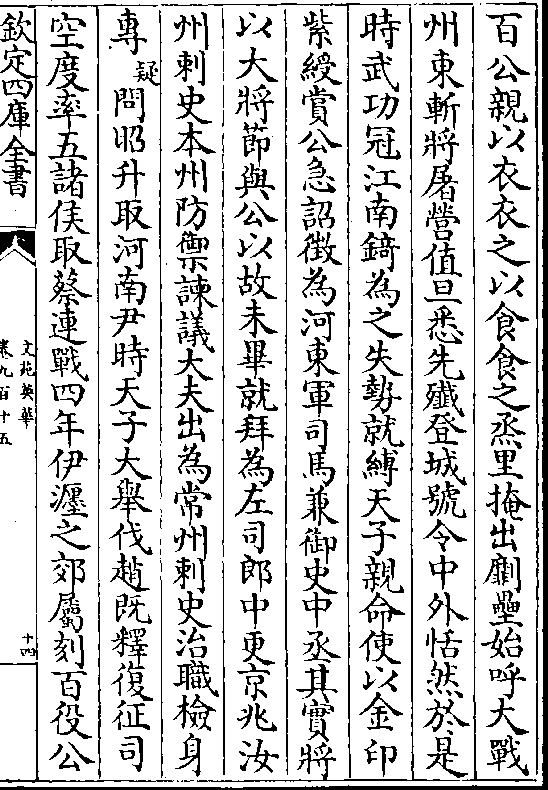 百公親以衣衣之以食食之烝里掩出劘壘始呼大戰
州東斬將屠營值旦悉先殱登城號令中外恬然於是
時武功冠江南錡為之失勢就縛天子親命使以金印
紫綬賞公急詔徵為河東軍司馬兼御史中丞其實將
以大將節與公以故未畢就拜為左司郎中更京兆汝
州剌史本州防禦諫議大夫出為常州剌史治職檢身
專疑問昭升取河南尹時天子大舉伐趙既釋復征司
空度率五諸侯取蔡連戰四年伊瀍之郊屬刻百役公
欽定四庫全書
文苑英華
卷九百十五
十四